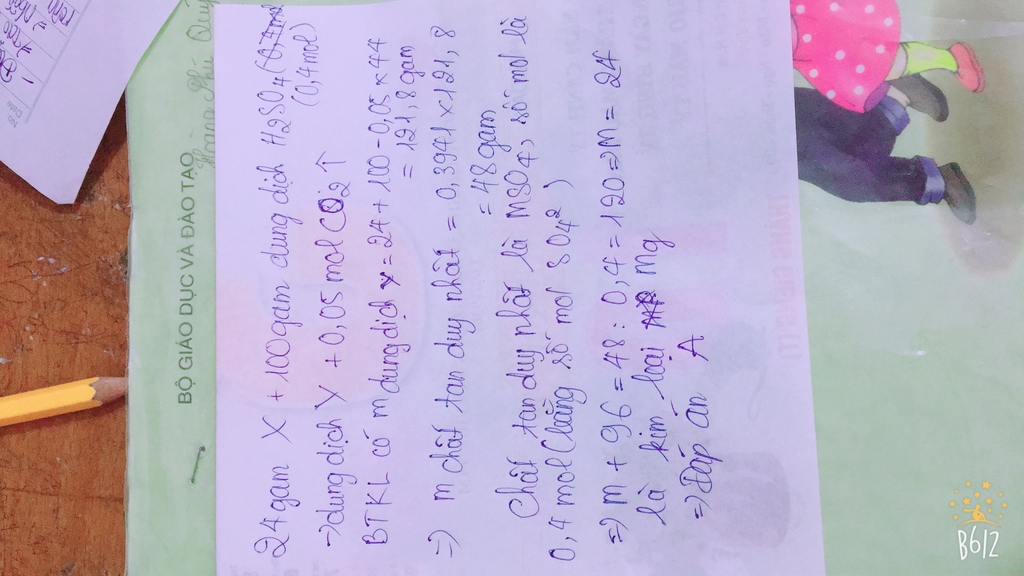 24gam X + 100gam dung dịch H2SO4
(0,4mol)
→ dung dịch Y + 0,05 mol CO2 ↑
BTKL có m dung dịch Y = 24 + 100 - 0,05 x 44
= 121,8 gam
=> m chất tan duy nhất = 0,3941 x 121,8
= 48 gam
Chất tan duy nhất là MSO4, số mol là
0,4 mol (bằng số mol SO4²)
=> M + 96 = 48 : 0,4 = 120 => M = 24
là kim loại Mg
=> Đáp án A
BỘ GIÁO DỤC VÀ ĐÀO TẠO
B612